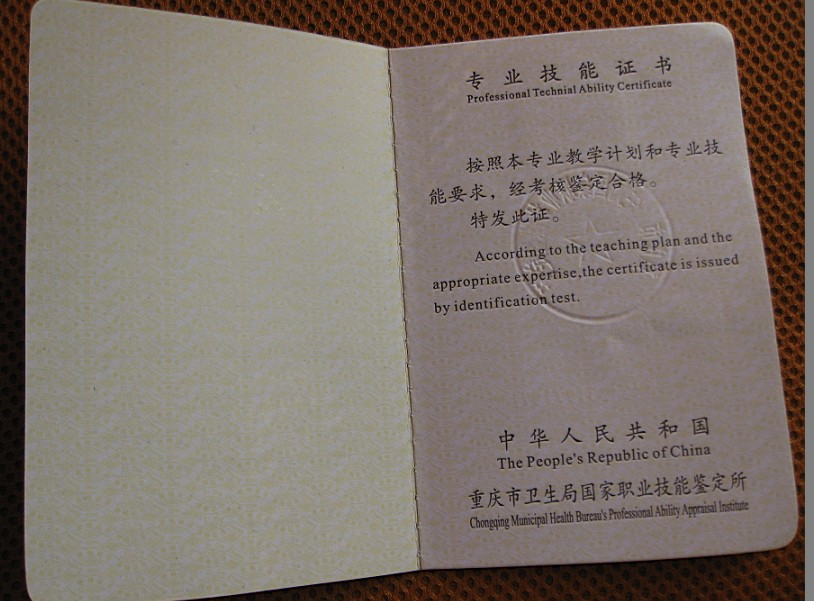 专业技能证书
Professional Technial Ability Certificate
按照本专业教学计划和专业技
能要求，经考核鉴定合格。
特发此证。
According to the teaching plan and the
appropriate expertise,the certificate is issued
by identification test.
中华人民共和国
The People's Republic of China
重庆市卫生局国家职业技能鉴定所
Chongqing Municipal Health Bureau's Professional Ability Appraisal Institute